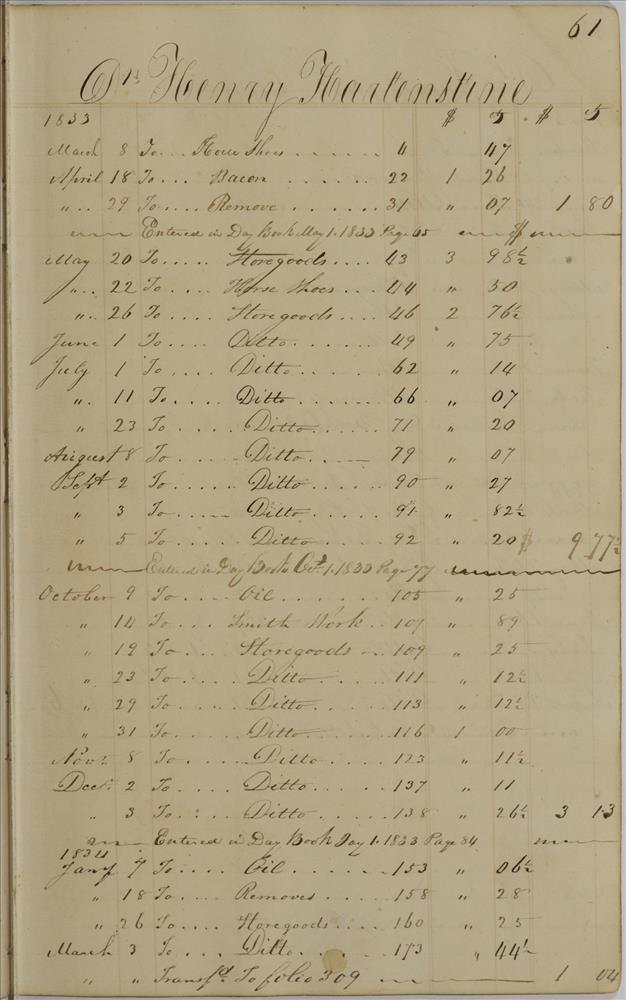 61
Drs Henry Hartenstine
1833 $ $
March 8 To ... Horse Shoes ...... 11 47
April 18 To .... Bacon ...... 22 1 26
" .. 29 To .... Remove ...... 31 " 07 1 80
Entered in Day Book May 1. 1833 Page 65 $
May 20 To ..... Storegoods .... 43 3 98½
" .. 22 To ..... Horse Shoes ... 44 " 50
" .. 26 To .... Storegoods .... 46 2 76½
June 1 To .... Ditto ..... 49 " 75
July 1 To .... Ditto ..... 62 " 14
" .. 11 To .... Ditto ...... 66 " 07
" 23 To ..... Ditto ..... 71 " 20
August 8 To ..... Ditto .... 79 " 07
Sept 2 To ..... Ditto ..... 90 " 27
" 3 To .... Ditto ..... 91 " 82½
" 5 To ..... Ditto ..... 92 " 20 $ 9 77½
Entered in Day Book Oct. 1. 1833 Page 77
October 9 To .... Oil ..... 105 " 25
" 14 To ... Smith Work .. 107 " 89
" 19 To ... Storegoods .. 109 " 25
" 23 To .... Ditto ..... 111 " 12½
" 29 To .... Ditto ..... 113 " 12½
" 31 To .... Ditto ..... 116 1 00
Novr 8 To .... Ditto ..... 123 " 11½
Decr. 2 To .... Ditto ..... 137 " 11
" 3 To .... Ditto ..... 138 " 26½ 3 13
Entered in Day Book Jay 1. 1833 Page 84
1834
Jany 7 To .... Oil ...... 153 " 06½
" 18 To .... Removes .... 158 " 28
" 26 To .... Storegoods .... 160 " 25
March 3 To ... Ditto ..... 173 " 44½
" " Transfd. To folio 309 1 04